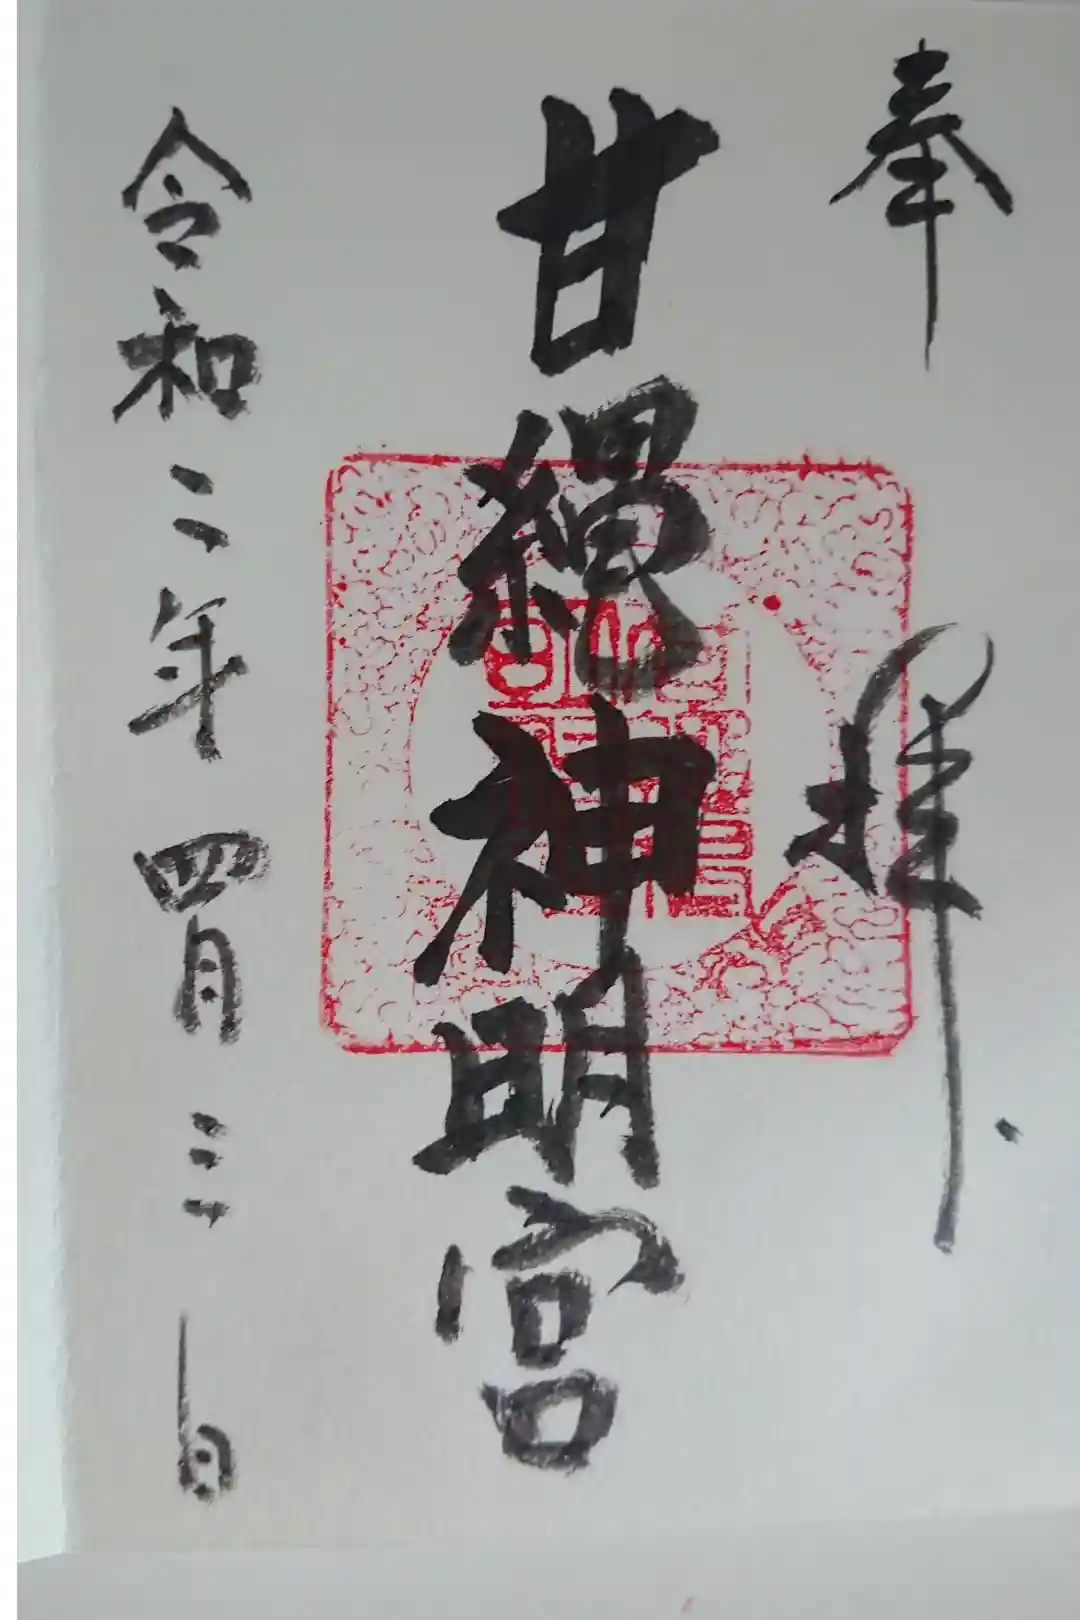 奉拝
甘縄神明宮
令和二年四月三日